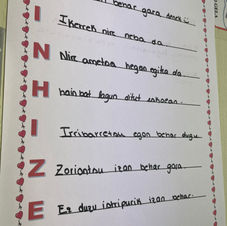 benar gara denok
I Ikerrek nire neba da.
N Nire ametsa hegan egitea da.
H hainbat lagun ditut eskolan.
I Irribarretsu egon behar dugu.
Z Zoriontsu izan behar gara.
E Ez dugu izan behar.